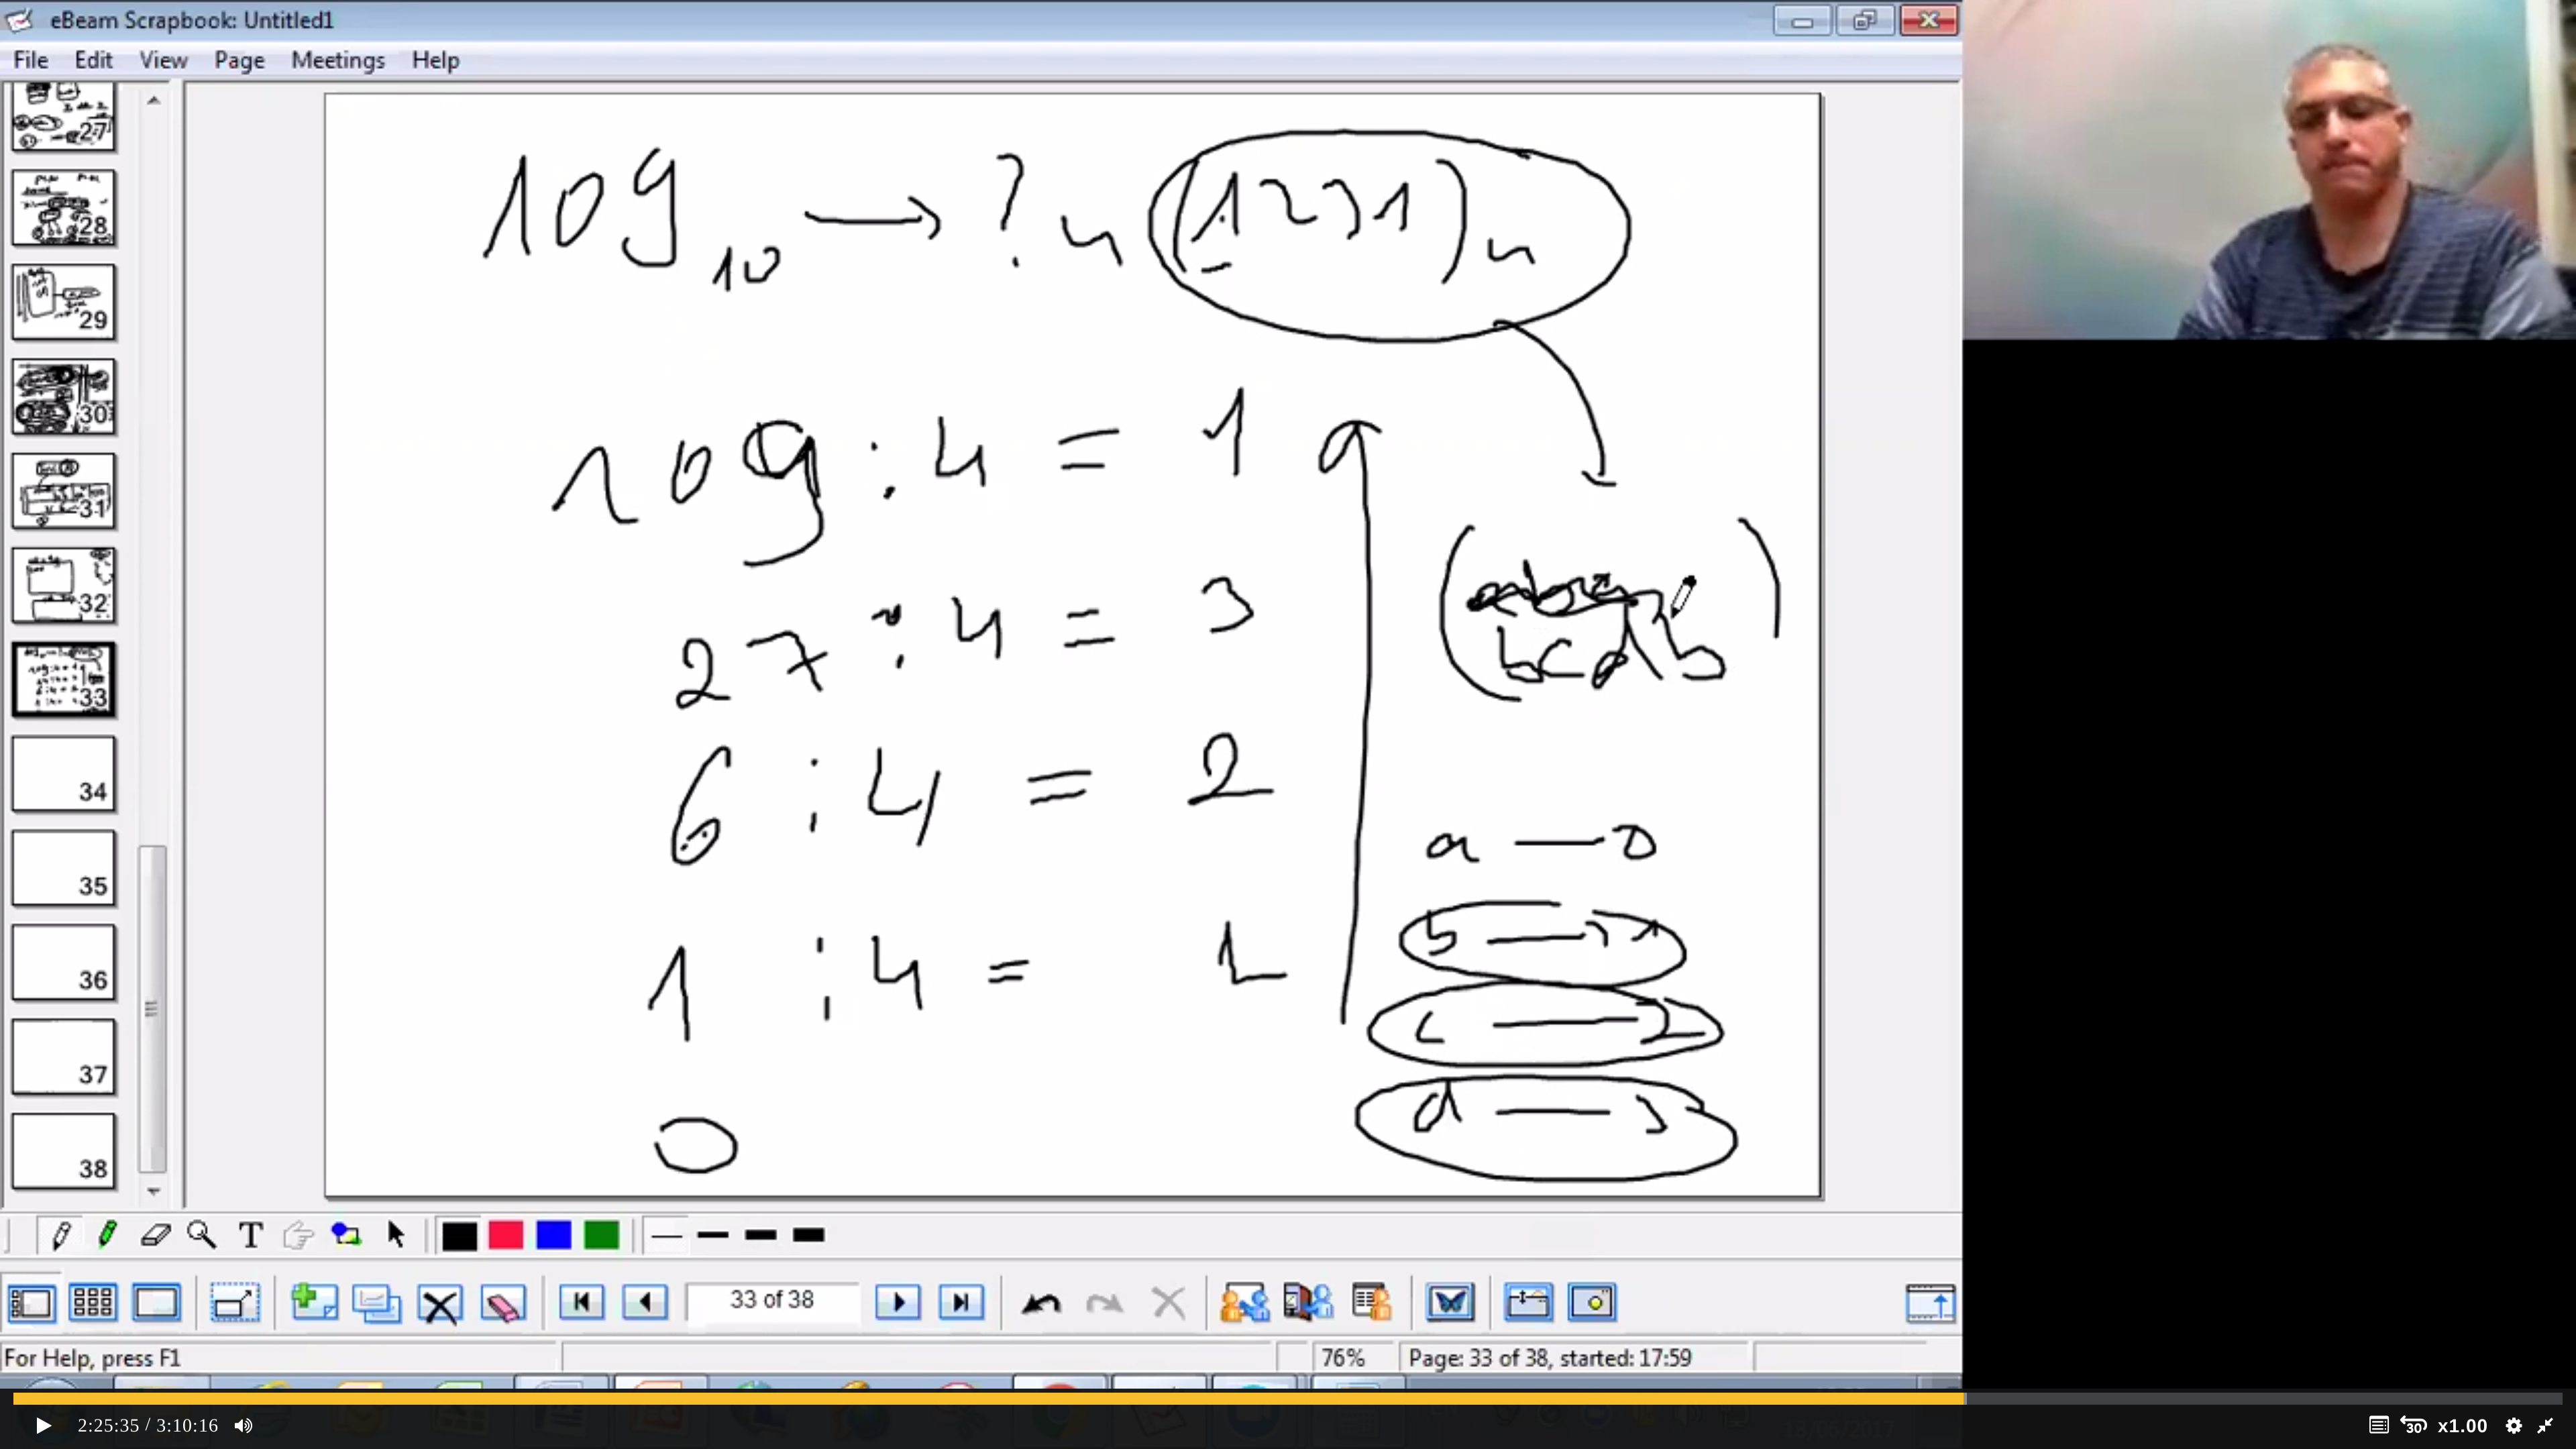 eBeam Scrapbook: Untitled1
File Edit View Page Meetings Help
27
28
29
30
31
32
33
34
35
36
37
38
109₁₀ → ?₄ (1231)₄
109 : 4 = 1
27 : 4 = 3
6 : 4 = 2
1 : 4 = 1
0
( bcdb )
a — 0
b — 1
c — 2
d — 3
T
33 of 38
For Help, press F1
76%
Page: 33 of 38, started: 17:59
2:25:35 / 3:10:16
30
x1.00